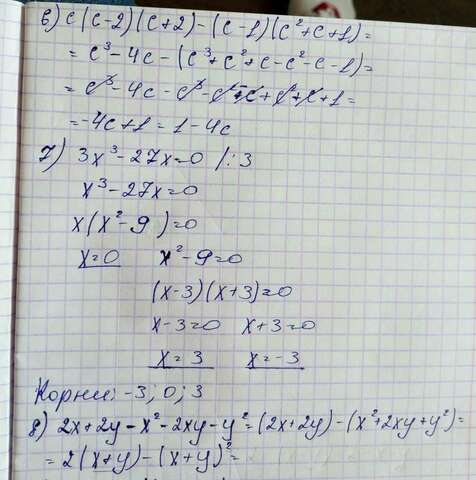 6) c(c-2)(c+2)-(c-1)(c²+c+1)=
= c³-4c-(c³+c²+c-c²-c-1)=
= c³-4c-c³-c²-c+c²+c+1=
=-4c+1=1-4c
7) 3x³-27x=0 /:3
x³-27x=0
x(x²-9)=0
x=0 x²-9=0
(x-3)(x+3)=0
x-3=0 x+3=0
x=3 x=-3
Корни: -3; 0; 3
8) 2x+2y-x²-2xy-y²=(2x+2y)-(x²+2xy+y²)=
=2(x+y)-(x+y)²=